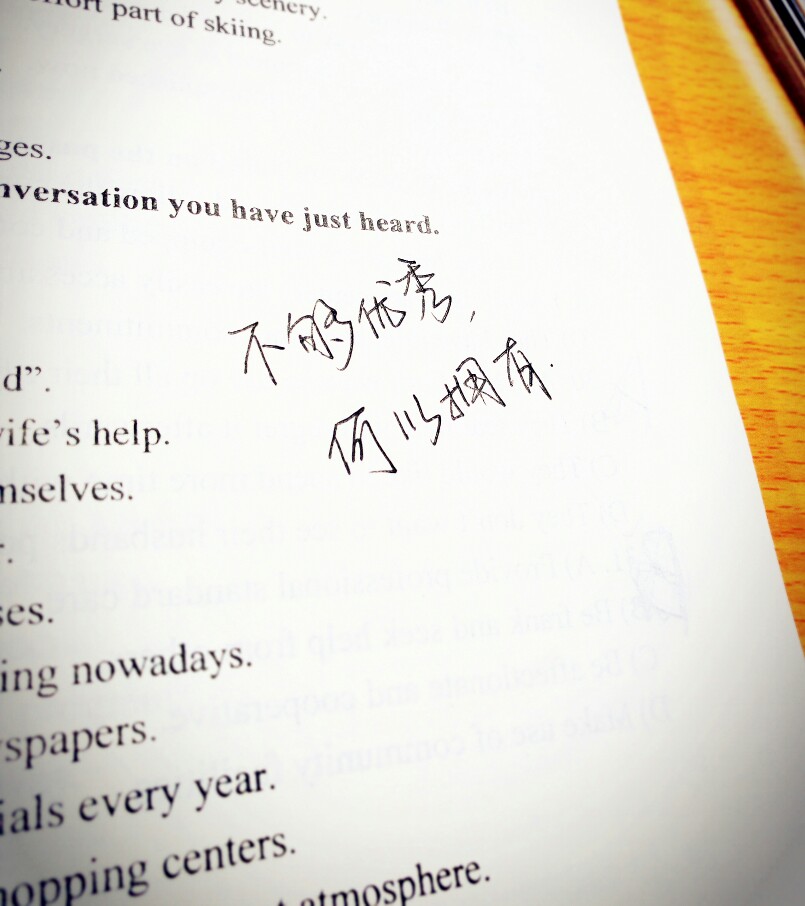 scenery.
part of skiing.
ges.
nversation you have just heard.
不够优秀，
何以拥有.
d”.
ife’s help.
mselves.
ses.
ing nowadays.
spapers.
ials every year.
hopping centers.
atmosphere.